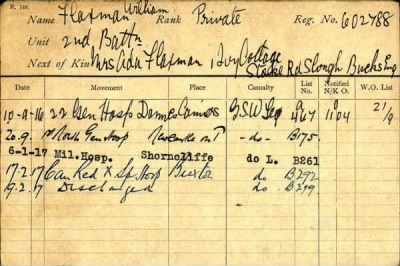 R. 149.
Name Flaxman William Rank Private Reg. No. 602788
Unit 2nd Battn
Next of Kin Mrs Ada Flaxman Ivy Cottage
Stoke Rd Slough Bucks Eng
Date Movement Place Casualty List No. Notified N/K O. W.O. List
10-9-16 22 Gen Hosp Dannes Camiers G.S.W. Leg A467 11/04 21/9
20.9. 1st North Gen Hosp Newcastle on T -do- B175.
6-1-17 Mil. Hosp. Shorncliffe do L. B261
17-2-17 Can Red X Sp Hosp Buxton do B292
9.2.17 Discharged do B299